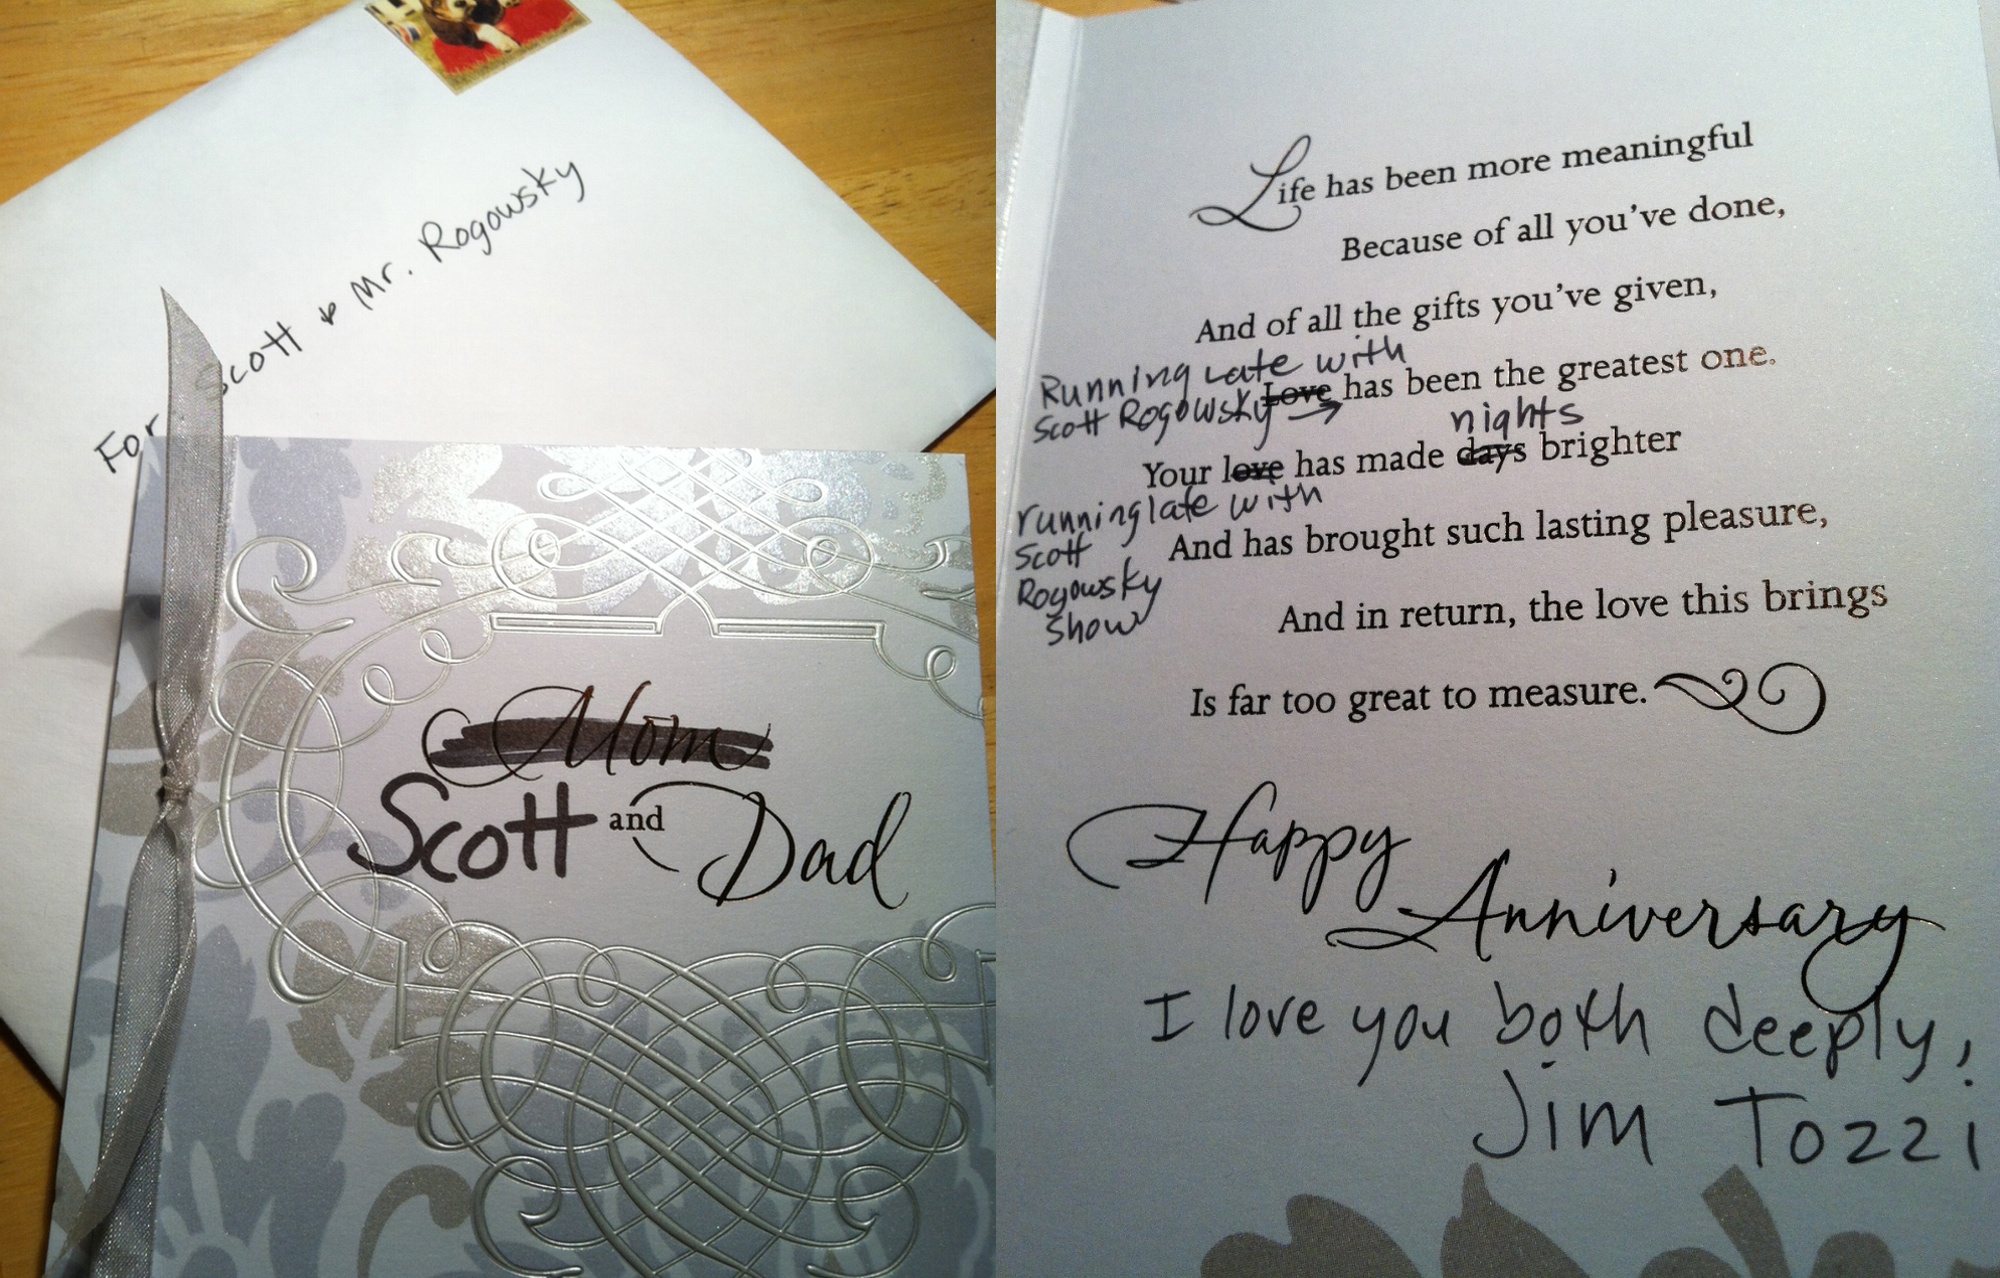 For Scott & Mr. Rogowsky
Mom
Scott and Dad
Life has been more meaningful
Because of all you've done,
And of all the gifts you've given,
Running late with
Scott Rogowsky → Love has been the greatest one.
nights
Your love has made days brighter
running late with
Scott
Rogowsky
Show
And has brought such lasting pleasure,
And in return, the love this brings
Is far too great to measure.
Happy
Anniversary
I love you both deeply,
Jim Tozzi